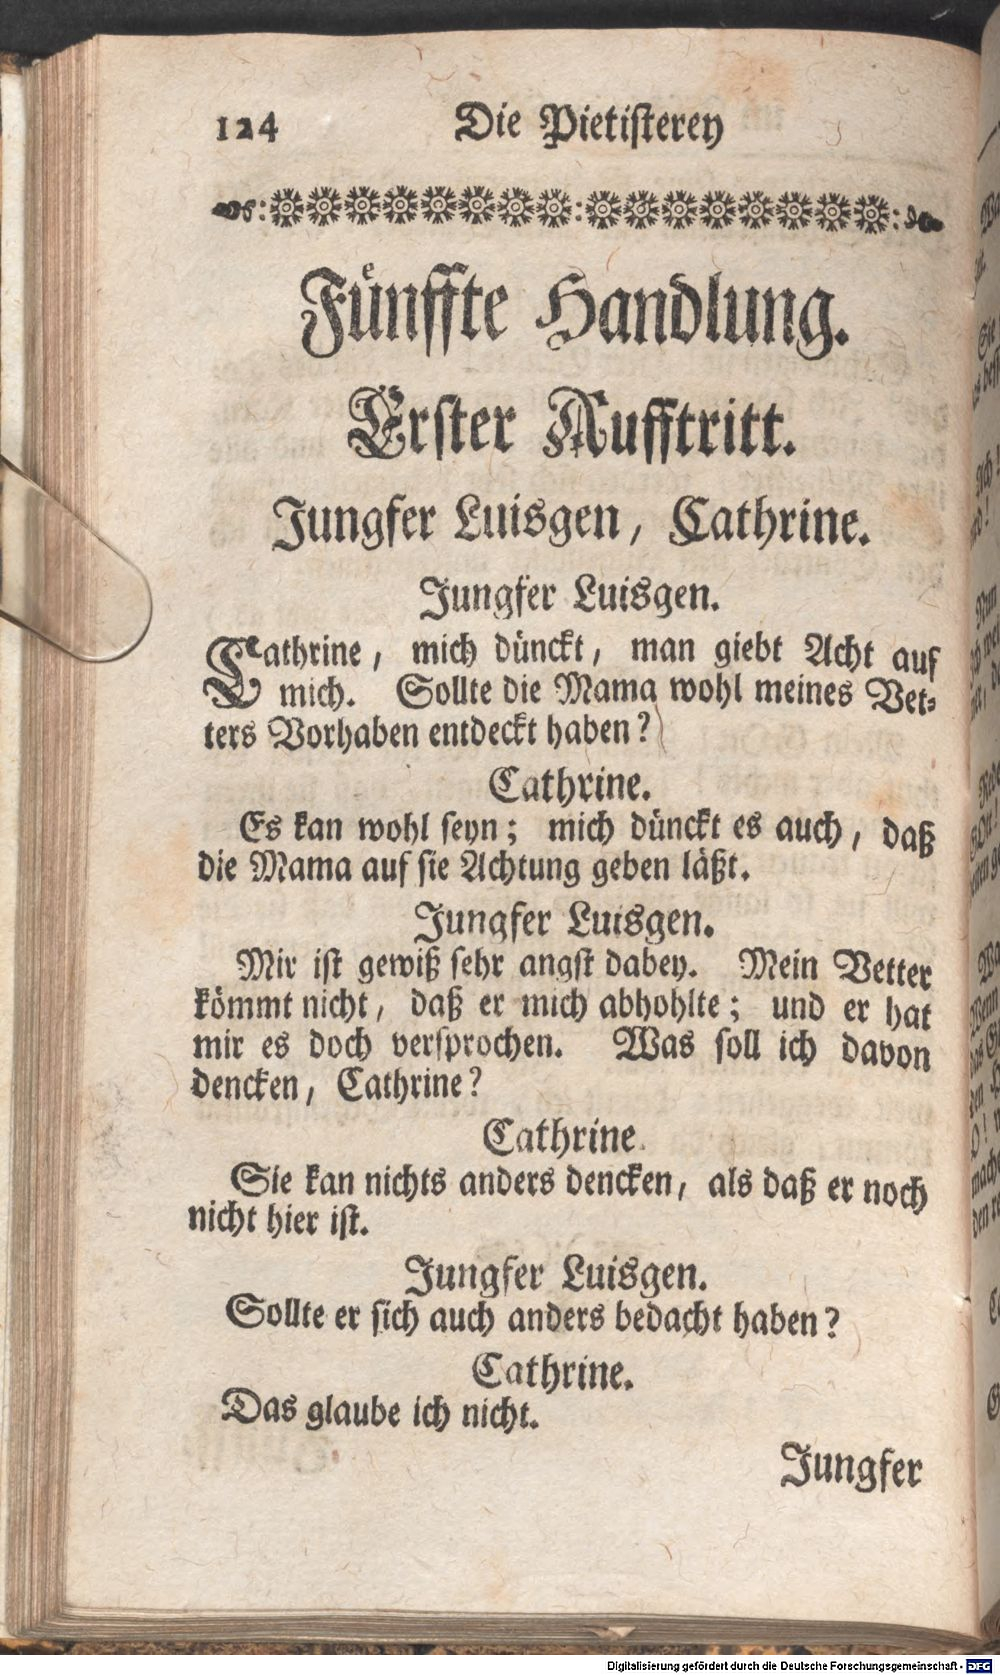 124 Die Pietisterey
Fünffte Handlung.
Erster Aufftritt.
Jungfer Luisgen, Cathrine.
Jungfer Luisgen.
Cathrine, mich dünckt, man giebt Acht auf
mich. Sollte die Mama wohl meines Vet-
ters Vorhaben entdeckt haben?
Cathrine.
Es kan wohl seyn; mich dünckt es auch, daß
die Mama auf sie Achtung geben läßt.
Jungfer Luisgen.
Mir ist gewiß sehr angst dabey. Mein Vetter
kömmt nicht, daß er mich abhohlte; und er hat
mir es doch versprochen. Was soll ich davon
dencken, Cathrine?
Cathrine.
Sie kan nichts anders dencken, als daß er noch
nicht hier ist.
Jungfer Luisgen.
Sollte er sich auch anders bedacht haben?
Cathrine.
Das glaube ich nicht.
Jungfer
Digitalisierung gefördert durch die Deutsche Forschungsgemeinschaft - DFG